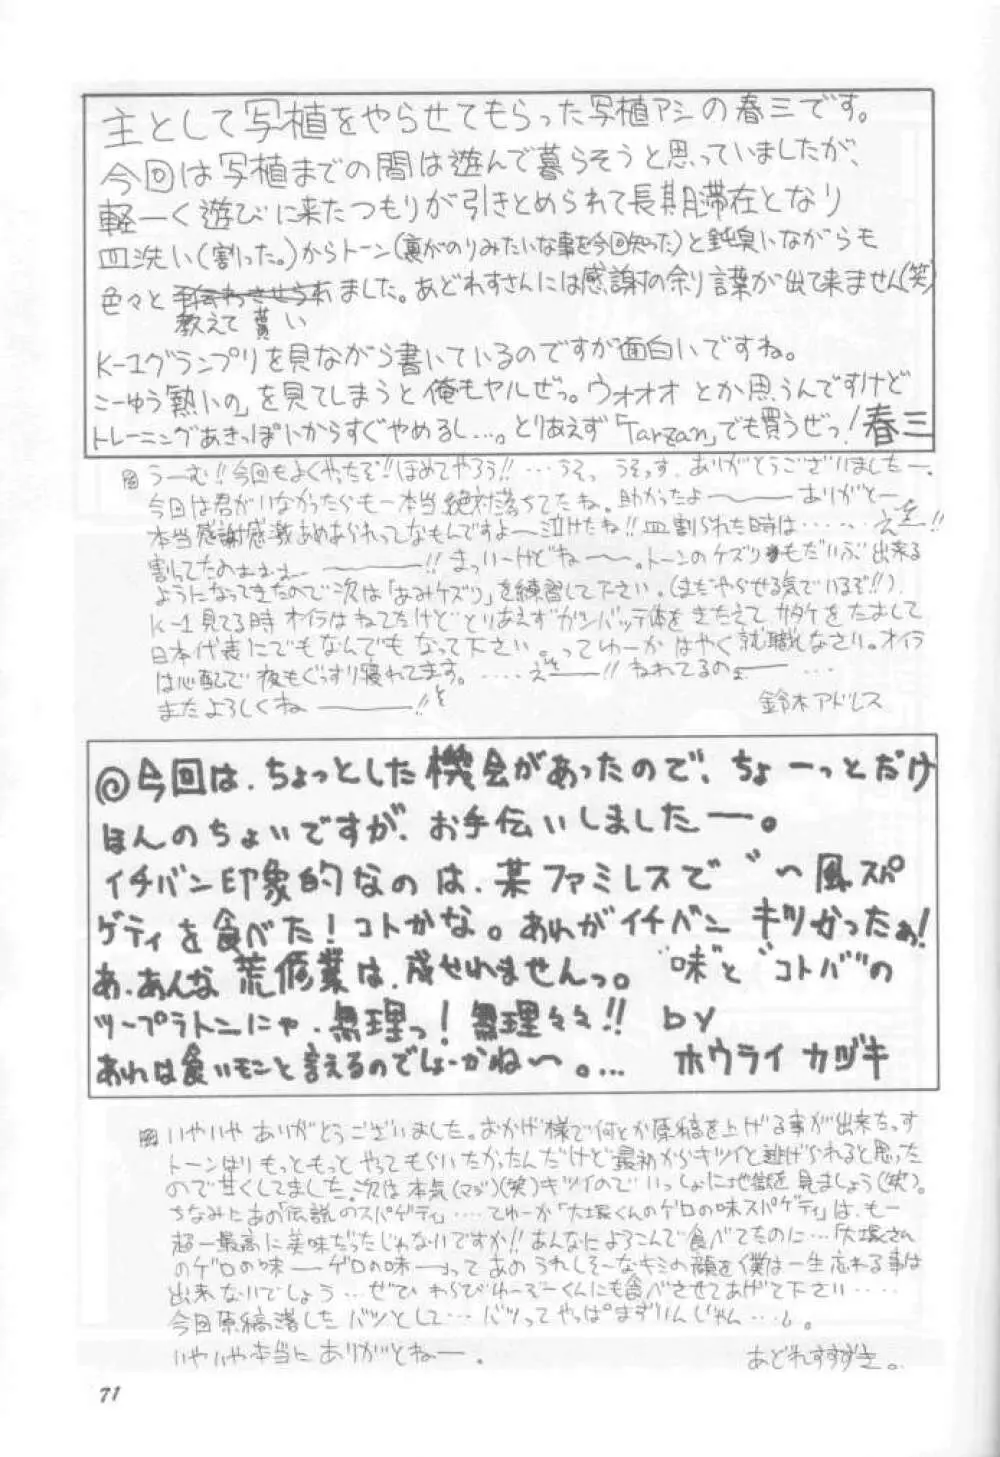 主として写植をやらせてもらった写植アシの春三です。
今回は写植までの間は遊んで暮らそうと思っていましたが、
軽ーく遊びに来たつもりが引きとめられて長期滞在となり
皿洗い(割った。)からトーン(裏がのりみたいな事を今回知った)と鈍臭いながらも
色々と ました。あどれすさんには感謝の余り言葉が出て来ません(笑)
教えて貰い
K-1グランプリを見ながら書いているのですが面白いですね。
こーゆう「熱いの」を見てしまうと俺もヤルぜっ。ウォオオ とか思うんですけど
トレーニングあきっぽいからすぐやめるし…。とりあえず「Tarzan」でも買うぜっ! 春三
うーむ!!今回もよくやったぞ!!ほめてやろう!!…うそっ うそっす、ありがとうございましたー。
今回は君がいなかったらもー本当絶対落ちてたね。助かったよ――― ありがとー
本当感謝感激あめあられってなもんですよ〜泣けたね!!皿割られた時は……え!!
割ってたのぉぉぉ―――!!まっいーけどねー〜。トーンのケズリもだいぶ出来る
ようになってきたので次は「あみケズリ」を練習して下さい。(まだやらせる気でいるぞ!!)
K-1見てる時オイラはねてたけどとりあえずガンバッテ体をきたえてサタケをたまして
日本代表にでもなんでもなって下さい。ってゆーかはやく就職しなさい。オイラ
は心配で夜もぐっすり寝れてます。….え――!! ねれてるのぉ―― …
またよろしくね ―――!!
鈴木アドレス
@今回は、ちょっとした機会があったので、ちょーっとだけ
ほんのちょいですが、お手伝いしましたー。
イチバン印象的なのは、某ファミレスで゛〜風スパ
ゲティを食べた!コトかな。あれがイチバン キツかったぁ!
あ、あんな荒修業は、成せれませんっ。"味"と"コトバ"の
ツープラトンにゃ、無理っ!無理々々!! by
あれは食いモンと言えるのでしょーかね〜。… ホウライ カヅキ
いやいやありがとうございました。おかげ様で何とか原稿を上げる事が出来たっす
トーンはりもっともっとやってもらいたかったんだけど最初からキツイと逃げられると思った
ので甘くしてました。次は本気(マジ)(笑)キツイのでいっしょに地獄を見ましょう(笑)。
ちなみにあの「伝説のスパゲティ」……てゆーか「大塚くんのゲロの味スパゲティ」は、もー
超一最高に美味だったじゃないですか!!あんなによろこんで食べてたのに…「大塚さん
のゲロの味ーゲロの味ー」ってあのうれしそーなキミの顔を僕は一生忘れる事は
出来ないでしょう…ぜひわらびゅーぞーくんにも食べさせてあげて下さい……
今回原稿落したバツとして…バツってやっぱまずいんじゃん…。
いやいや本当にありがとねー。 あどれすすずき。
71